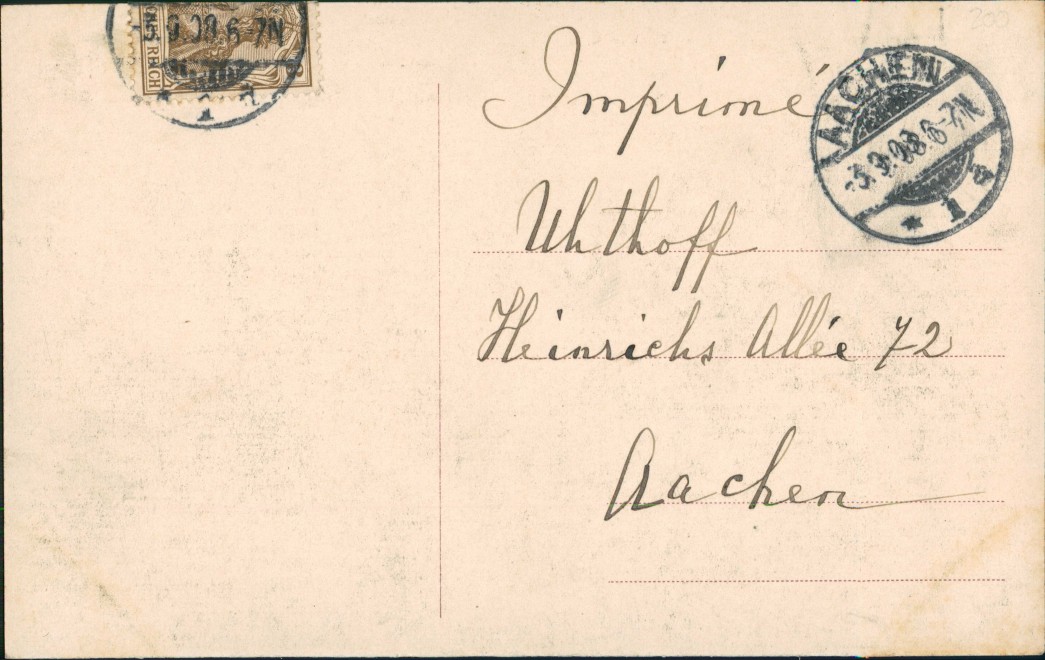 -3.9.08.6-7N
1
REICH
Imprimé
AACHEN
-3.9.08.6-7N
* 1 a
Uhthoff
Heinrichs Allée 72
Aachen